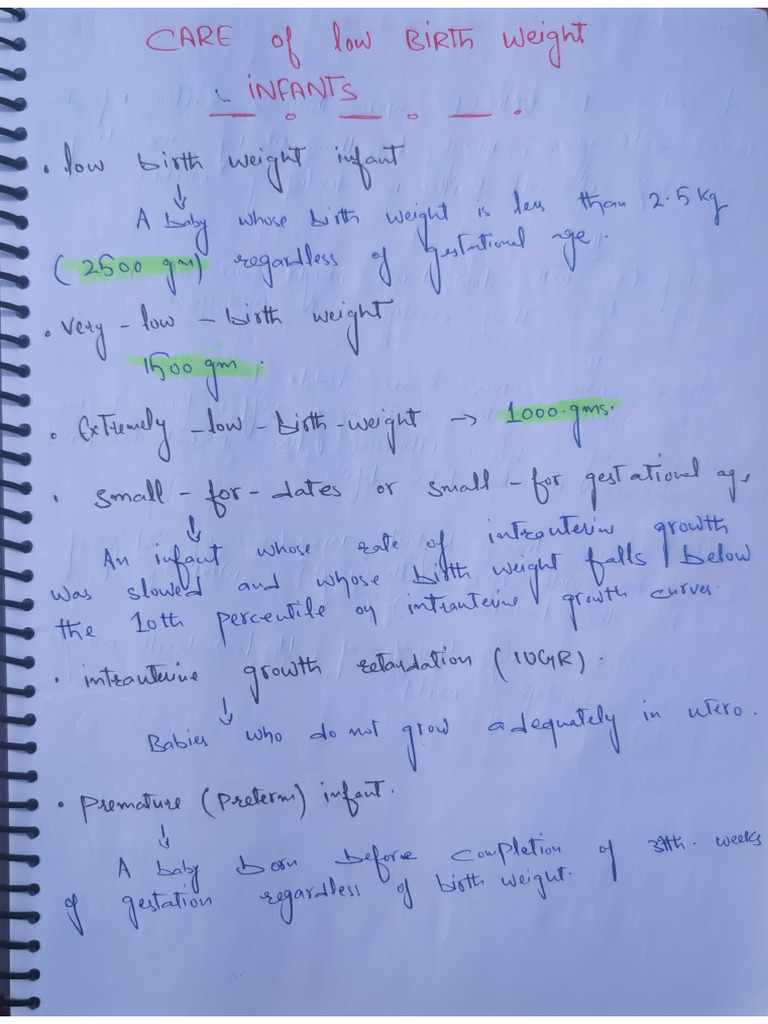 CARE of low BIRTH weight
INFANTS
• low birth weight infant
A baby whose birth weight is less than 2.5 kg
(2500 gm) regardless of gestational age.
• Very - low - birth weight
1500 gm.
• Extremely - low - birth - weight → 1000 gms.
• small - for - dates or small - for gestational age
An infant whose rate of intrauterine growth
was slowed and whose birth weight falls below
the 10th percentile on intrauterine growth curves.
• intrauterine growth retardation (IUGR).
Babies who do not grow adequately in utero.
• Premature (Preterm) infant.
A baby born before completion of weeks
of gestation regardless of birth weight.